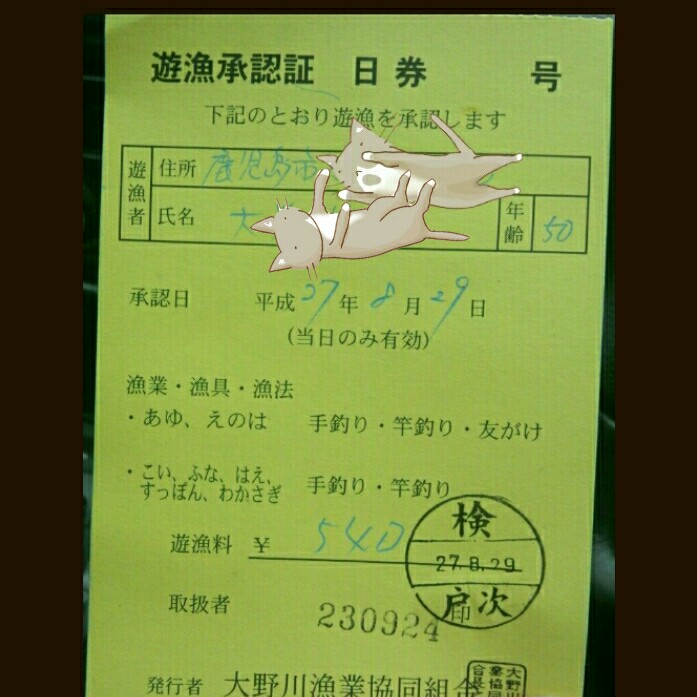 遊漁承認証 日券 号
下記のとおり遊漁を承認します
遊漁者 住所 鹿児島市
氏名 大 年齢 50
承認日 平成27年8月29日
(当日のみ有効)
漁業・漁具・漁法
・あゆ、えのは 手釣り・竿釣り・友がけ
・こい、ふな、はえ、
すっぽん、わかさぎ 手釣り・竿釣り
遊漁料 ¥ 540
検
27.8.29
戸次
取扱者 230924 印
発行者 大野川漁業協同組合